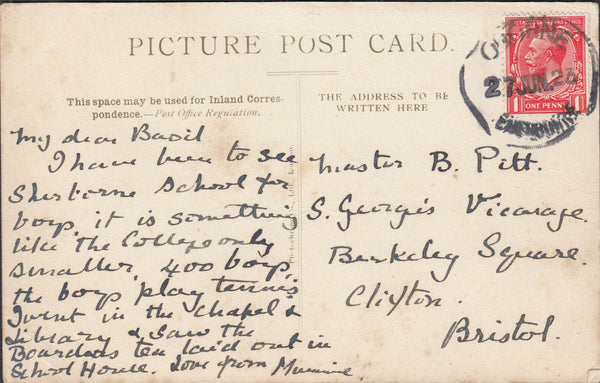 PICTURE POST CARD.
This space may be used for Inland Corres-
pondence.—Post Office Regulation.
THE ADDRESS TO BE
WRITTEN HERE
27 JUN.23
ONE PENNY
1 1
My dear Basil
I have been to see
Sherborne School for
boys it is something
like the College only
smaller, 400 boys,
the boys play tennis
I went in the Chapel &
Library & saw the
Boarders tea laid out in
School House. Love from Mummie.
Master B. Pitt.
S. George's Vicarage
Berkeley Square.
Clifton.
Bristol.